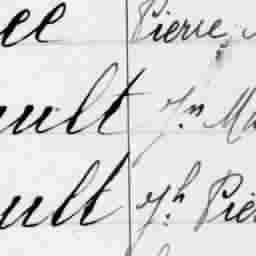 ee Pierre
ault Jn Ma
ault Jh Pie